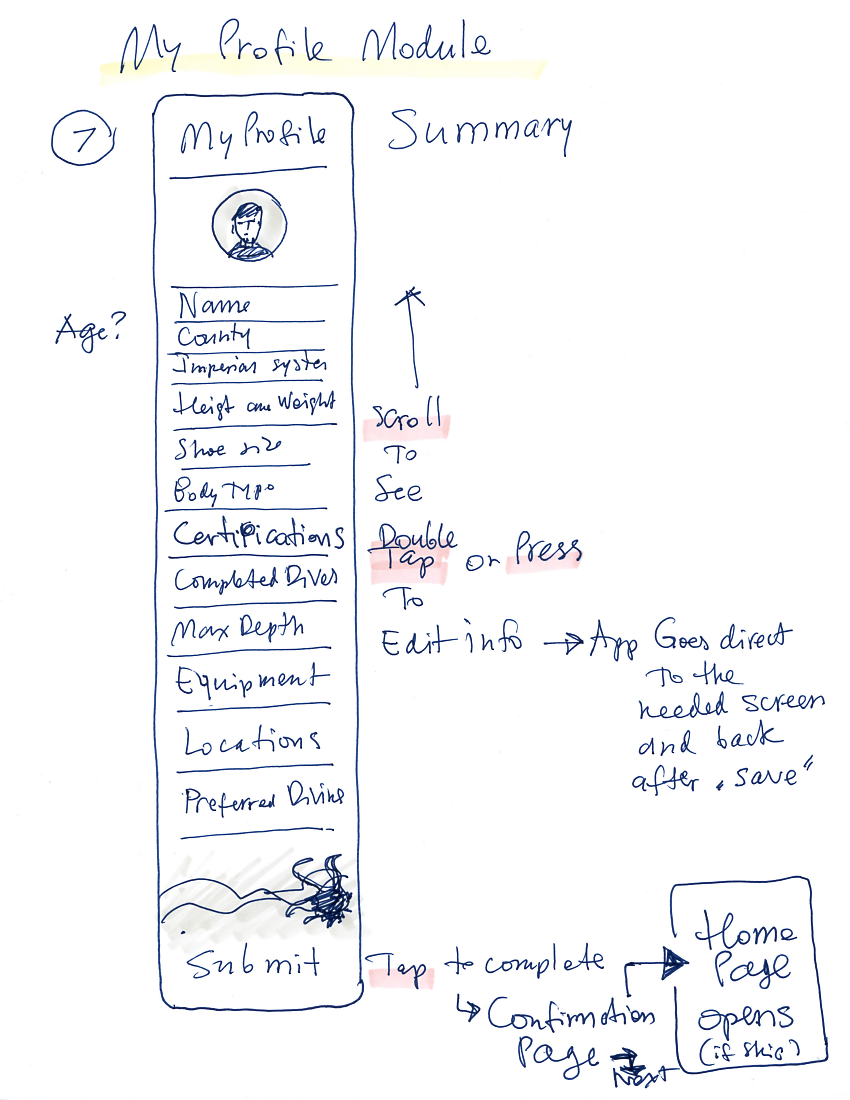 My Profile Module
7
My Profile
Summary
Name
Age?
County
Imperian system
Heigt and Weight
Scroll
Shoe size
To
Body Type
See
Certifications
Double
Tap or Press
Completed Dives
To
Max Depth
Edit info → App Goes direct
To the
needed screen
and back
after "save"
Equipment
Locations
Preferred Divine
Submit
Tap to complete
↳ Confirmation
Page →
Next
Home
Page
opens
(if skip?)